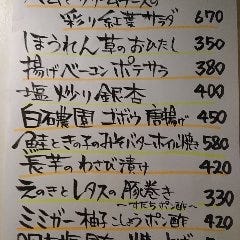 彩り紅葉サラダ 670
ほうれん草のおひたし 350
揚げベーコンポテサラ 380
塩炒り銀杏 400
白石農園 ゴボウ唐揚げ 450
鮭ときの子のみそバターホイル焼き 580
長芋のわさび漬け 420
えのきとレタスの豚巻き 330
〜すだちポン酢〜
ミミガー柚子こしょうポン酢 420